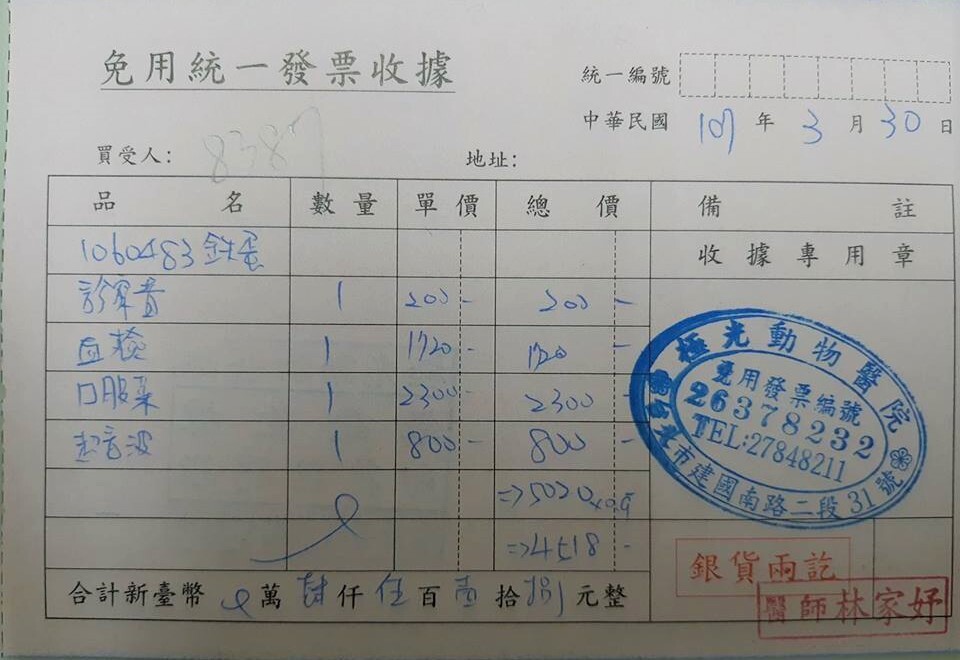 免用統一發票收據
統一編號
中華民國 107 年 3 月 30 日
買受人: 8387
地址:
品名 數量 單價 總價 備註
1060483 鉄蛋
收據專用章
診察費 1 200- 200-
血檢 1 1720- 1720-
口服藥 1 2300- 2300-
超音波 1 800- 800-
=>5020x0.9
=>4518-
合計新臺幣 萬 肆 仟 伍 百 壹 拾 捌 元整
極光動物醫院
免用發票編號
26378232
TEL:27848211
台北市建國南路二段31號
銀貨兩訖
醫師林家妤